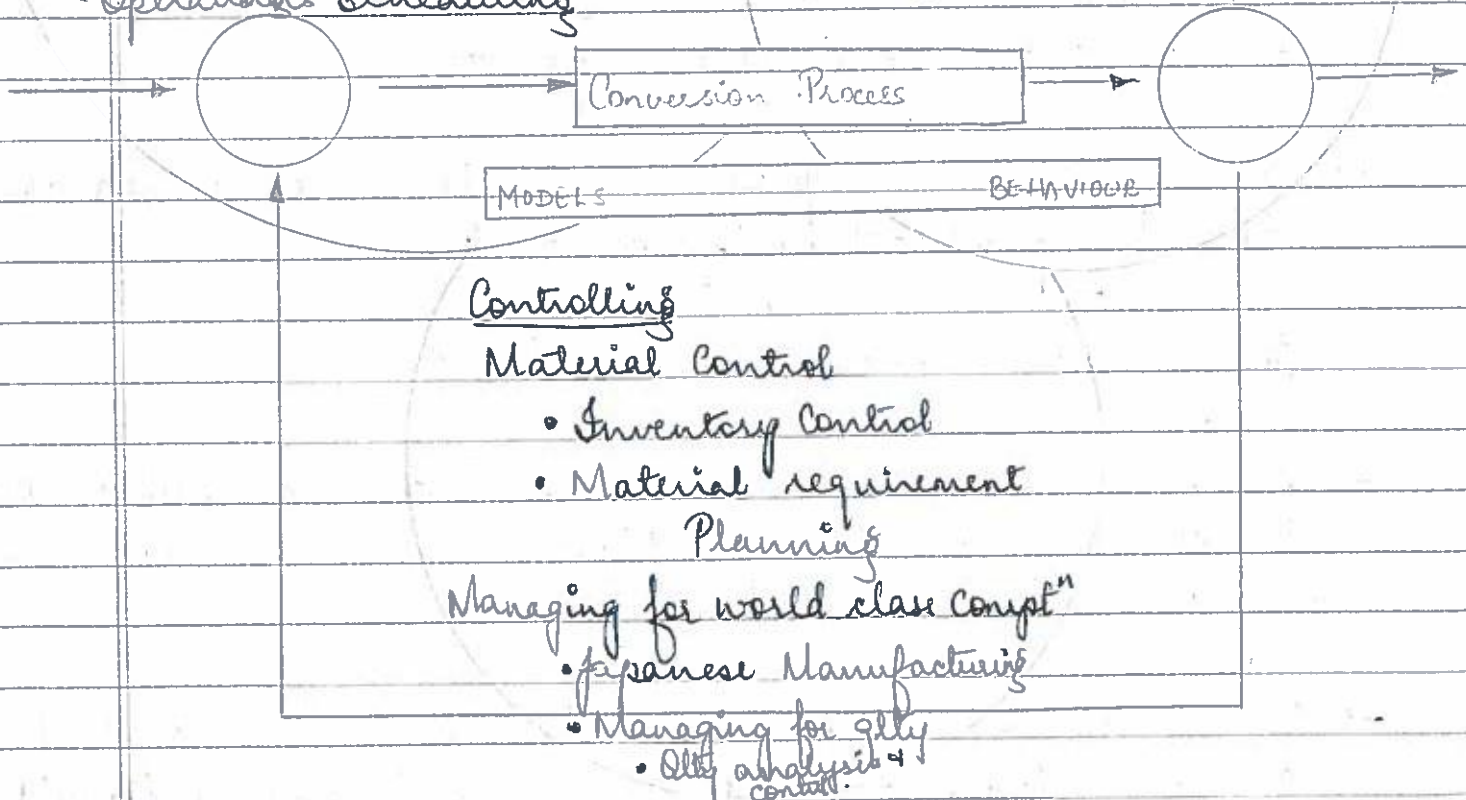 • Operations Scheduling
Conversion Process
MODELS BEHAVIOUR
Controlling
Material Control
• Inventory Control
• Material requirement
Planning
Managing for world class Compt^n
• Japanese Manufacturing
• Managing for qlty
• Qlty analysis &
control.